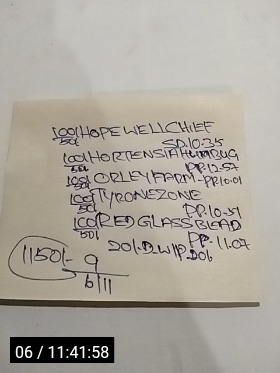 100/ HOPEWELLCHIEF
50/ SD.10.35
100/ HORTENSIAHUMBUG
50/ PP.12.57
100/ ORLEYFARM-PP.10.01
50/
100/ TYRONEZONE
50/ PP.10.31
100/ RED GLASS BEAD
50/ PP.11.07
20/.D.W/P.DOG
1150/- 9
6/11
06 / 11:41:58